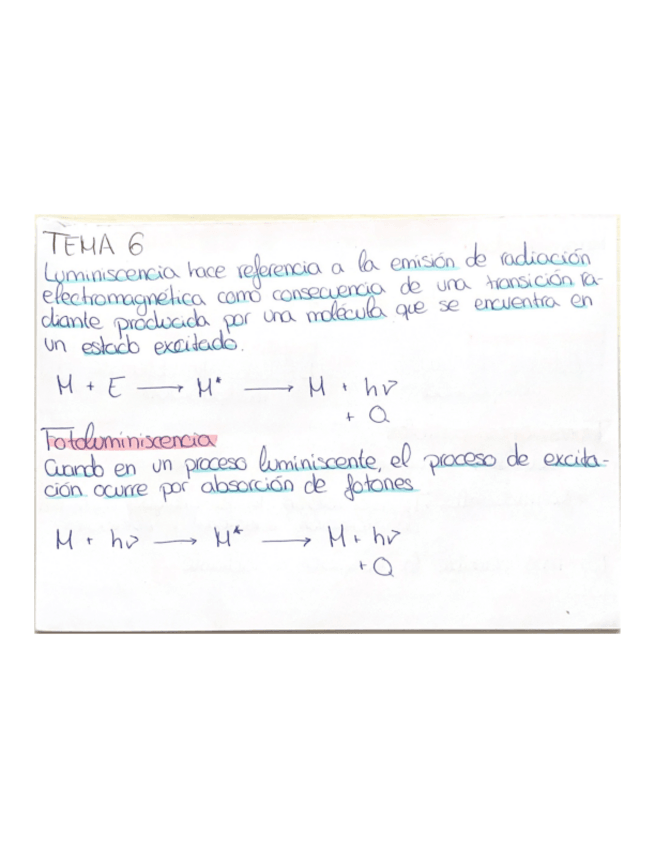 TEMA 6
Luminiscencia hace referencia a la emisión de radiación
electromagnética como consecuencia de una transición ra-
diante producida por una molécula que se encuentra en
un estado excitado.
M + E → M* → M + hν
+ Q
Fotoluminiscencia
Cuando en un proceso luminiscente, el proceso de excita-
ción ocurre por absorción de fotones
M + hν → M* → M + hν
+ Q